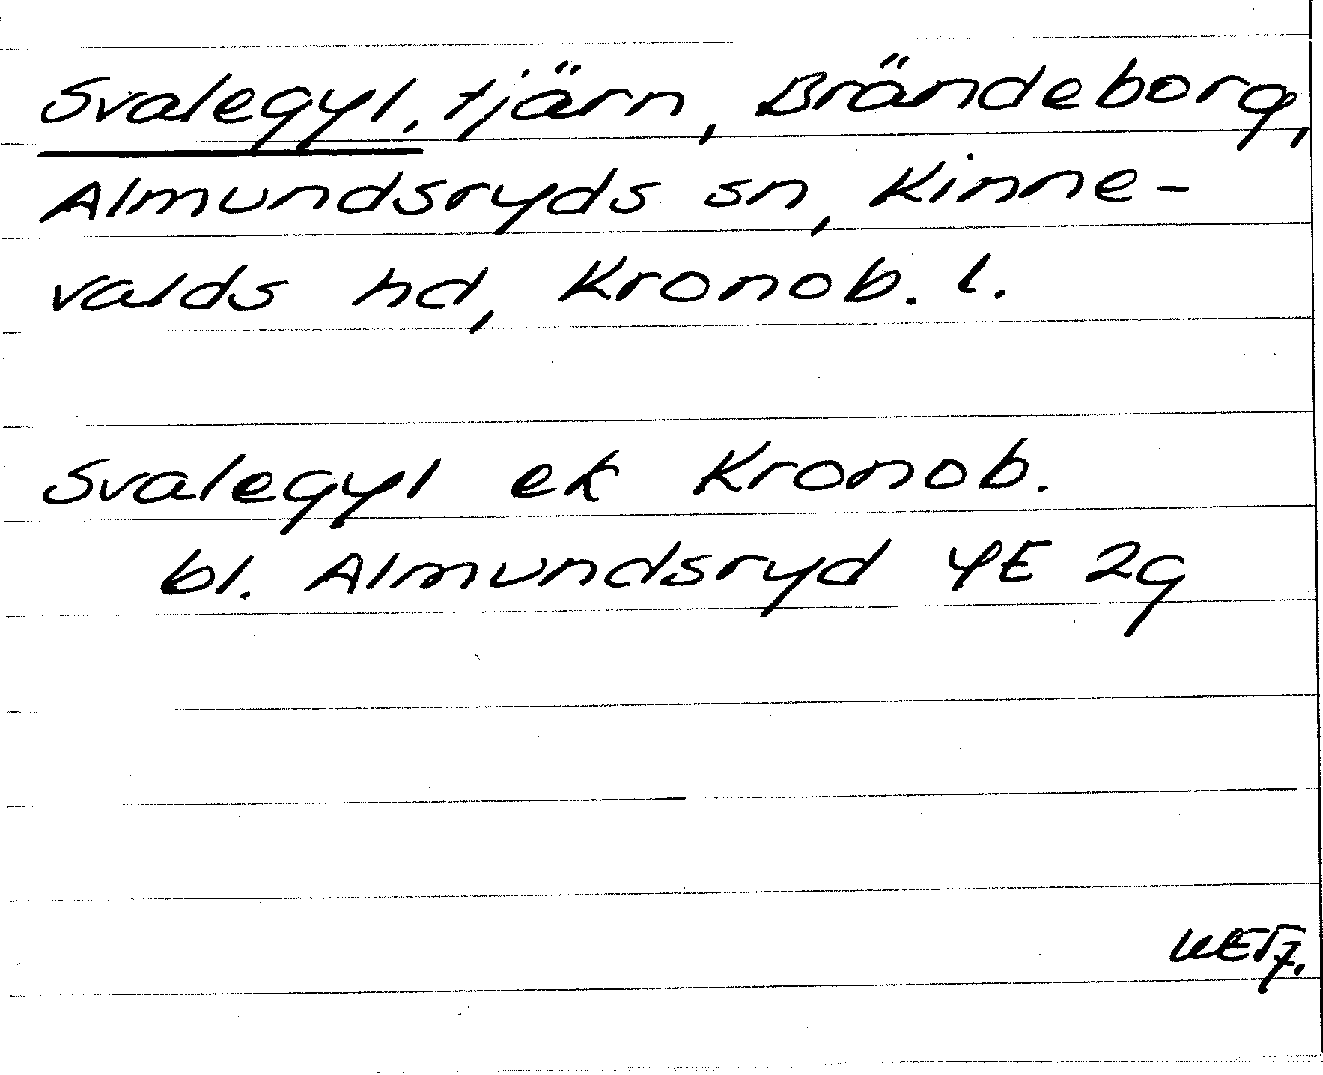 Svalegyl, tjärn, Brändeborg,
Almundsryds sn, Kinne-
valds hd, Kronob. l.
Svalegyl ek Kronob.
bl. Almundsryd 4E 2g